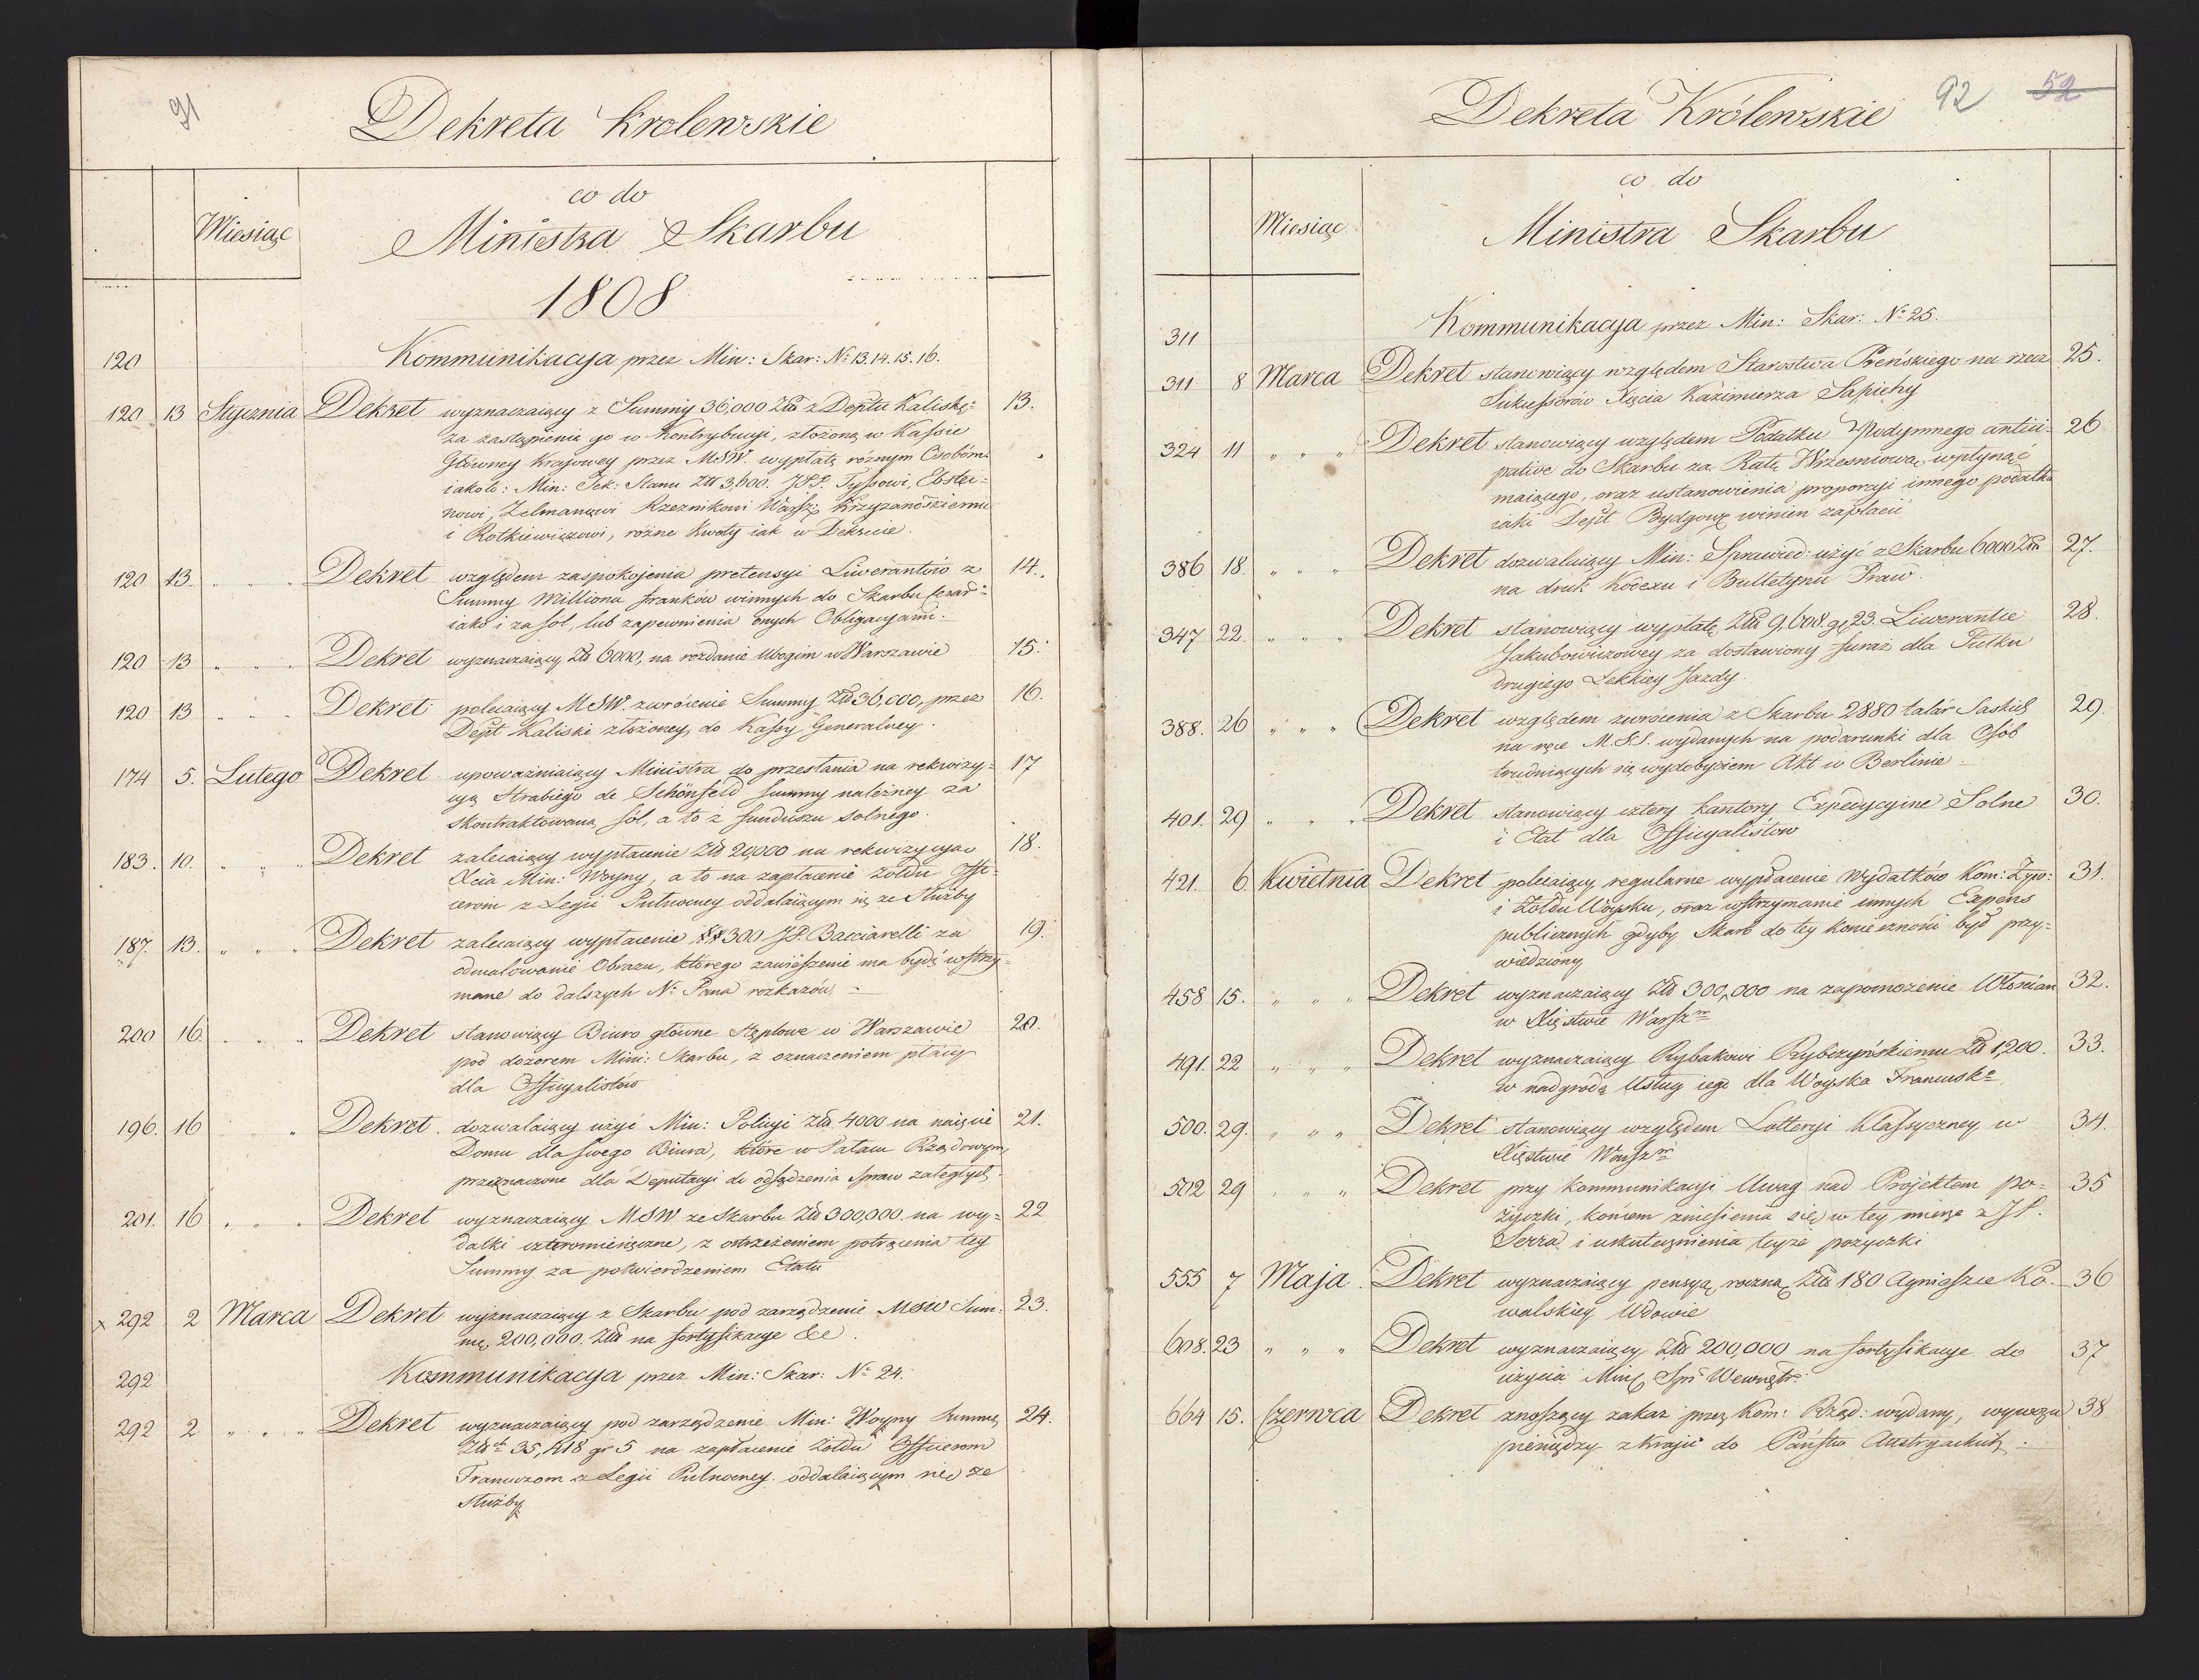 91
Dekreta Krolewskie
co do
Miesiąc
Ministra Skarbu
1808
120 Kommunikacyja przez Min: Skar: Nº 13. 14. 15. 16.
120 13 Stycznia Dekret wyznaczaiący z Summy 36,000 Złł z Deptu Kaliskę= 13.
za zastąpienie go w Kontrybucyi, złożoną w Kassie
Główney Krajowey przez MSW. wypłatę różnym Osobom.
iakoto: Min: Sek: Stanu Złł 3,600. JPP. Tyssowi, Ebstei=
nowi, Zelmanowi Rzeznikowi Warsz: Krzyzanoskiemu
i Rotkiewiczowi, różne Kwoty iak w Dekrecie.
120 13. " " " Dekret względem zaspokojenia pretensyi Liwerantów z 14.
Summy Milliona franków winnych do Skarbu
iako i za sól, lub zapewnienia onych Obligacyami.
120 13 " " " Dekret wyznaczaiący Złł 6000, na rozdanie Ubogim w Warszawie 15.
120 13 " " " Dekret polecaiący MSW. zwrócenie Summy Złł 36,000, przez 16.
Dept Kaliski złożoney, do Kassy Generalney.
174 5. Lutego Dekret upoważniaiący Ministra do przesłania na rekwizy= 17
cyą Hrabiego de Schönfeld summy należney za
skontraktowaną sól, a to z funduszu solnego.
183. 10. " " " Dekret zalecaiący wypłacenie Złł 20,000 na rekwizycyą 18.
Xcia Min: Woyny, a to na zapłacenie żołdu Offi=
cerom z Legii Pułnocney oddalaiącym się ze Służby
187. 13. " " " Dekret zalecaiący wypłacenie 300 JP. Bacciarelli za 19.
odmalowanie Obrazu, którego zawieszenie ma bydź wstrzy=
mane do dalszych N. Pana rozkazów. =
200 16. " " " Dekret stanowiący Biuro główne stęplowe w Warszawie 20.
pod dozorem Mini: Skarbu, z oznaczeniem płacy
dla Officyalistów
196. 16 " Dekret dozwalaiący użyć Min: Policyi Złł. 4000 na naięcie 21.
Domu dla swego Biura, które w Pałacu Rządowym,
przeznaczone dla Deputacyi do odsądzenia spraw zaległych.
201. 16 " " " Dekret wyznaczaiący MSW ze Skarbu Złł 300,000 na wy= 22
datki czteromiesięczne, z ostrzeżeniem potrącenia tey
Summy za potwierdzeniem Etatu
x 292 2 Marca Dekret wyznaczaiący z Skarbu pod zarządzenie MSW Sum= 23.
mę 200,000. Złł na fortyfikacye &c.
292 Kommunikacyja przez Min: Skar: Nº 24.
292 2 " " " Dekret wyznaczaiący pod zarządzenie Min: Woyny summę 24.
Złł 35, gr 5 na zapłacenie żołdu Officerom
Francuzom z Legii Pułnocney oddalaiącym się ze
służby
92 52
Dekreta Królewskie
co do
Miesiąc
Ministra Skarbu
311 Kommunikacyja przez Min: Skar: Nº 25.
311 8 Marca Dekret stanowiący względem Starostwa Preńskiego na rzecz 25.
Sukussorów Xięcia Kazimierza Sapiehy
324 11 " " " Dekret stanowiący względem Podatku Podymnego antici= 26
pative do Skarbu za Ratę Wrzesniową wpłynąć
maiącego, oraz ustanowienia proporcyi innego podatku
iaki Dept Bydgoski winien zapłacić
386 18. " " " Dekret dozwalaiący Min: Sprawied: użyć z Skarbu 6000 Złł 27.
na druk Kodexu i Bulletynu Praw.
347 22. " " " Dekret stanowiący wypłatę Złł 9,608. gr 23. Liwerantce 28.
Jakubowiczowey za dostawiony furaż dla Pułku
drugiego Lekkiey Jazdy.
388. 26 " " " Dekret względem zwrócenia z Skarbu 2880 talar Saskich 29.
na ręce M.S.S. wydanych na podarunki dla Osób
trudniących się wydobyciem Akt w Berlinie =
401. 29 " " " Dekret stanowiący cztery kantory Expedycyine Solne 30.
i Etat dla Officyalistow
421. 6 Kwietnia Dekret polecaiący regularne wypłacenie Wydatków Kom: Żyw: 31.
i Żołdu Woysku, oraz wstrzymanie innych Expens
publicznych gdyby Skarb do tey konieczności był przy=
wiedziony
458 15. " " " Dekret wyznaczaiący Złł 300,000 na zapomożenie Włościan 32.
w Xięstwie Warsz
491. 22 " " " Dekret wyznaczaiący Rybakowi Rybczyńskiemu Złł 1,200. 33.
w nadgrodę Usług iego dla Woyska Francusk
500. 29. " " " Dekret stanowiący względem Lotteryi Klassyczney w 34.
Xięstwie Warsz
502 29 " " " Dekret przy kommunikacyi Uwag nad Projektem po= 35
życzki, końcem zniesienia się w tey mierze z JP.
Serra i uskutecznienia teyże pożyczki
555 7 Maja Dekret wyznaczaiący pensyą roczną Złł 180 Agnieszce Ko= 36
walskiey Wdowie
608. 23 " " " Dekret wyznaczaiący Złł 200,000 na fortyfikacye do 37
użycia Min: Spr Wewnętr:
664 15. Czerwca Dekret znoszący zakaz przez Kom: Rząd: wydany, wywozu 38
pieniędzy z kraju do Państw Austryackich.